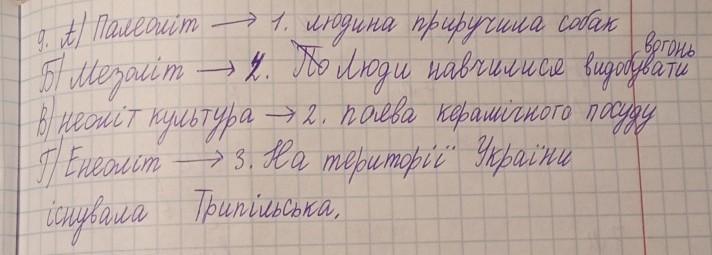 9. А) Палеоліт → 1. людина приручила собак
Б) Мезоліт → 4. Люди навчилися видобувати вогонь
В) неоліт культура → 2. поява керамічного посуду
Г) Енеоліт → 3. На території України
існувала Трипільська.